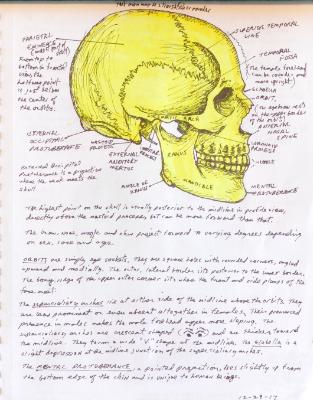 This man has a
PARIETAL
EMINENCE
(widest point
SUPERIOR TEMPORAL
LINE
From top to
bottom in frontal
view, the
halfway point
is just below
the center of
the orbits.
TEMPORAL
FOSSA
(The temple
can be
rounded or more
upright)
GLABELLA
ORBIT
(The eyebrow rests
on the upper border
of the orbit)
ANTERIOR
NASAL
SPINE
EXTERNAL
OCCIPITAL
PROTUBERANCE
MASTOID
PROCESS
EXTERNAL
AUDITORY
MEATUS
STYLOID
PROCESS
ARCH
RAMUS
CANINE
External occipital
protuberance is a projection
where the neck meets the
skull.
ANGLE OF
RAMUS
MANDIBLE
MENTAL
PROTUBERANCE
The highest point on the skull is usually posterior to the midline in profile view,
directly above the mastoid process, but can be more forward than that.
The brow, nose, muzzle and chin project forward in varying degrees depending
on sex, race and age.
ORBITS are simply eye sockets. They are square holes with rounded corners, angled
upward and medially. The outer, lateral border sits posterior to the inner border.
The bony ridge of the upper outer corner sits where the front and side planes of the
face meet.
The superciliary arches lie at either side of the midline above the orbits. They
are less prominent or even absent altogether in females. Their pronounced
presence in males makes the male forehead appear more sloping. The
superciliary arches are crescent shaped and are thicker toward
the midline. They form a wide "V" shape at the midline. The glabella is a
slight depression at the midline junction of the superciliary arches.
The MENTAL PROTUBERANCE, a pointed projection, lies slightly up from
the bottom edge of the chin and is unique to human beings.
12-29-17